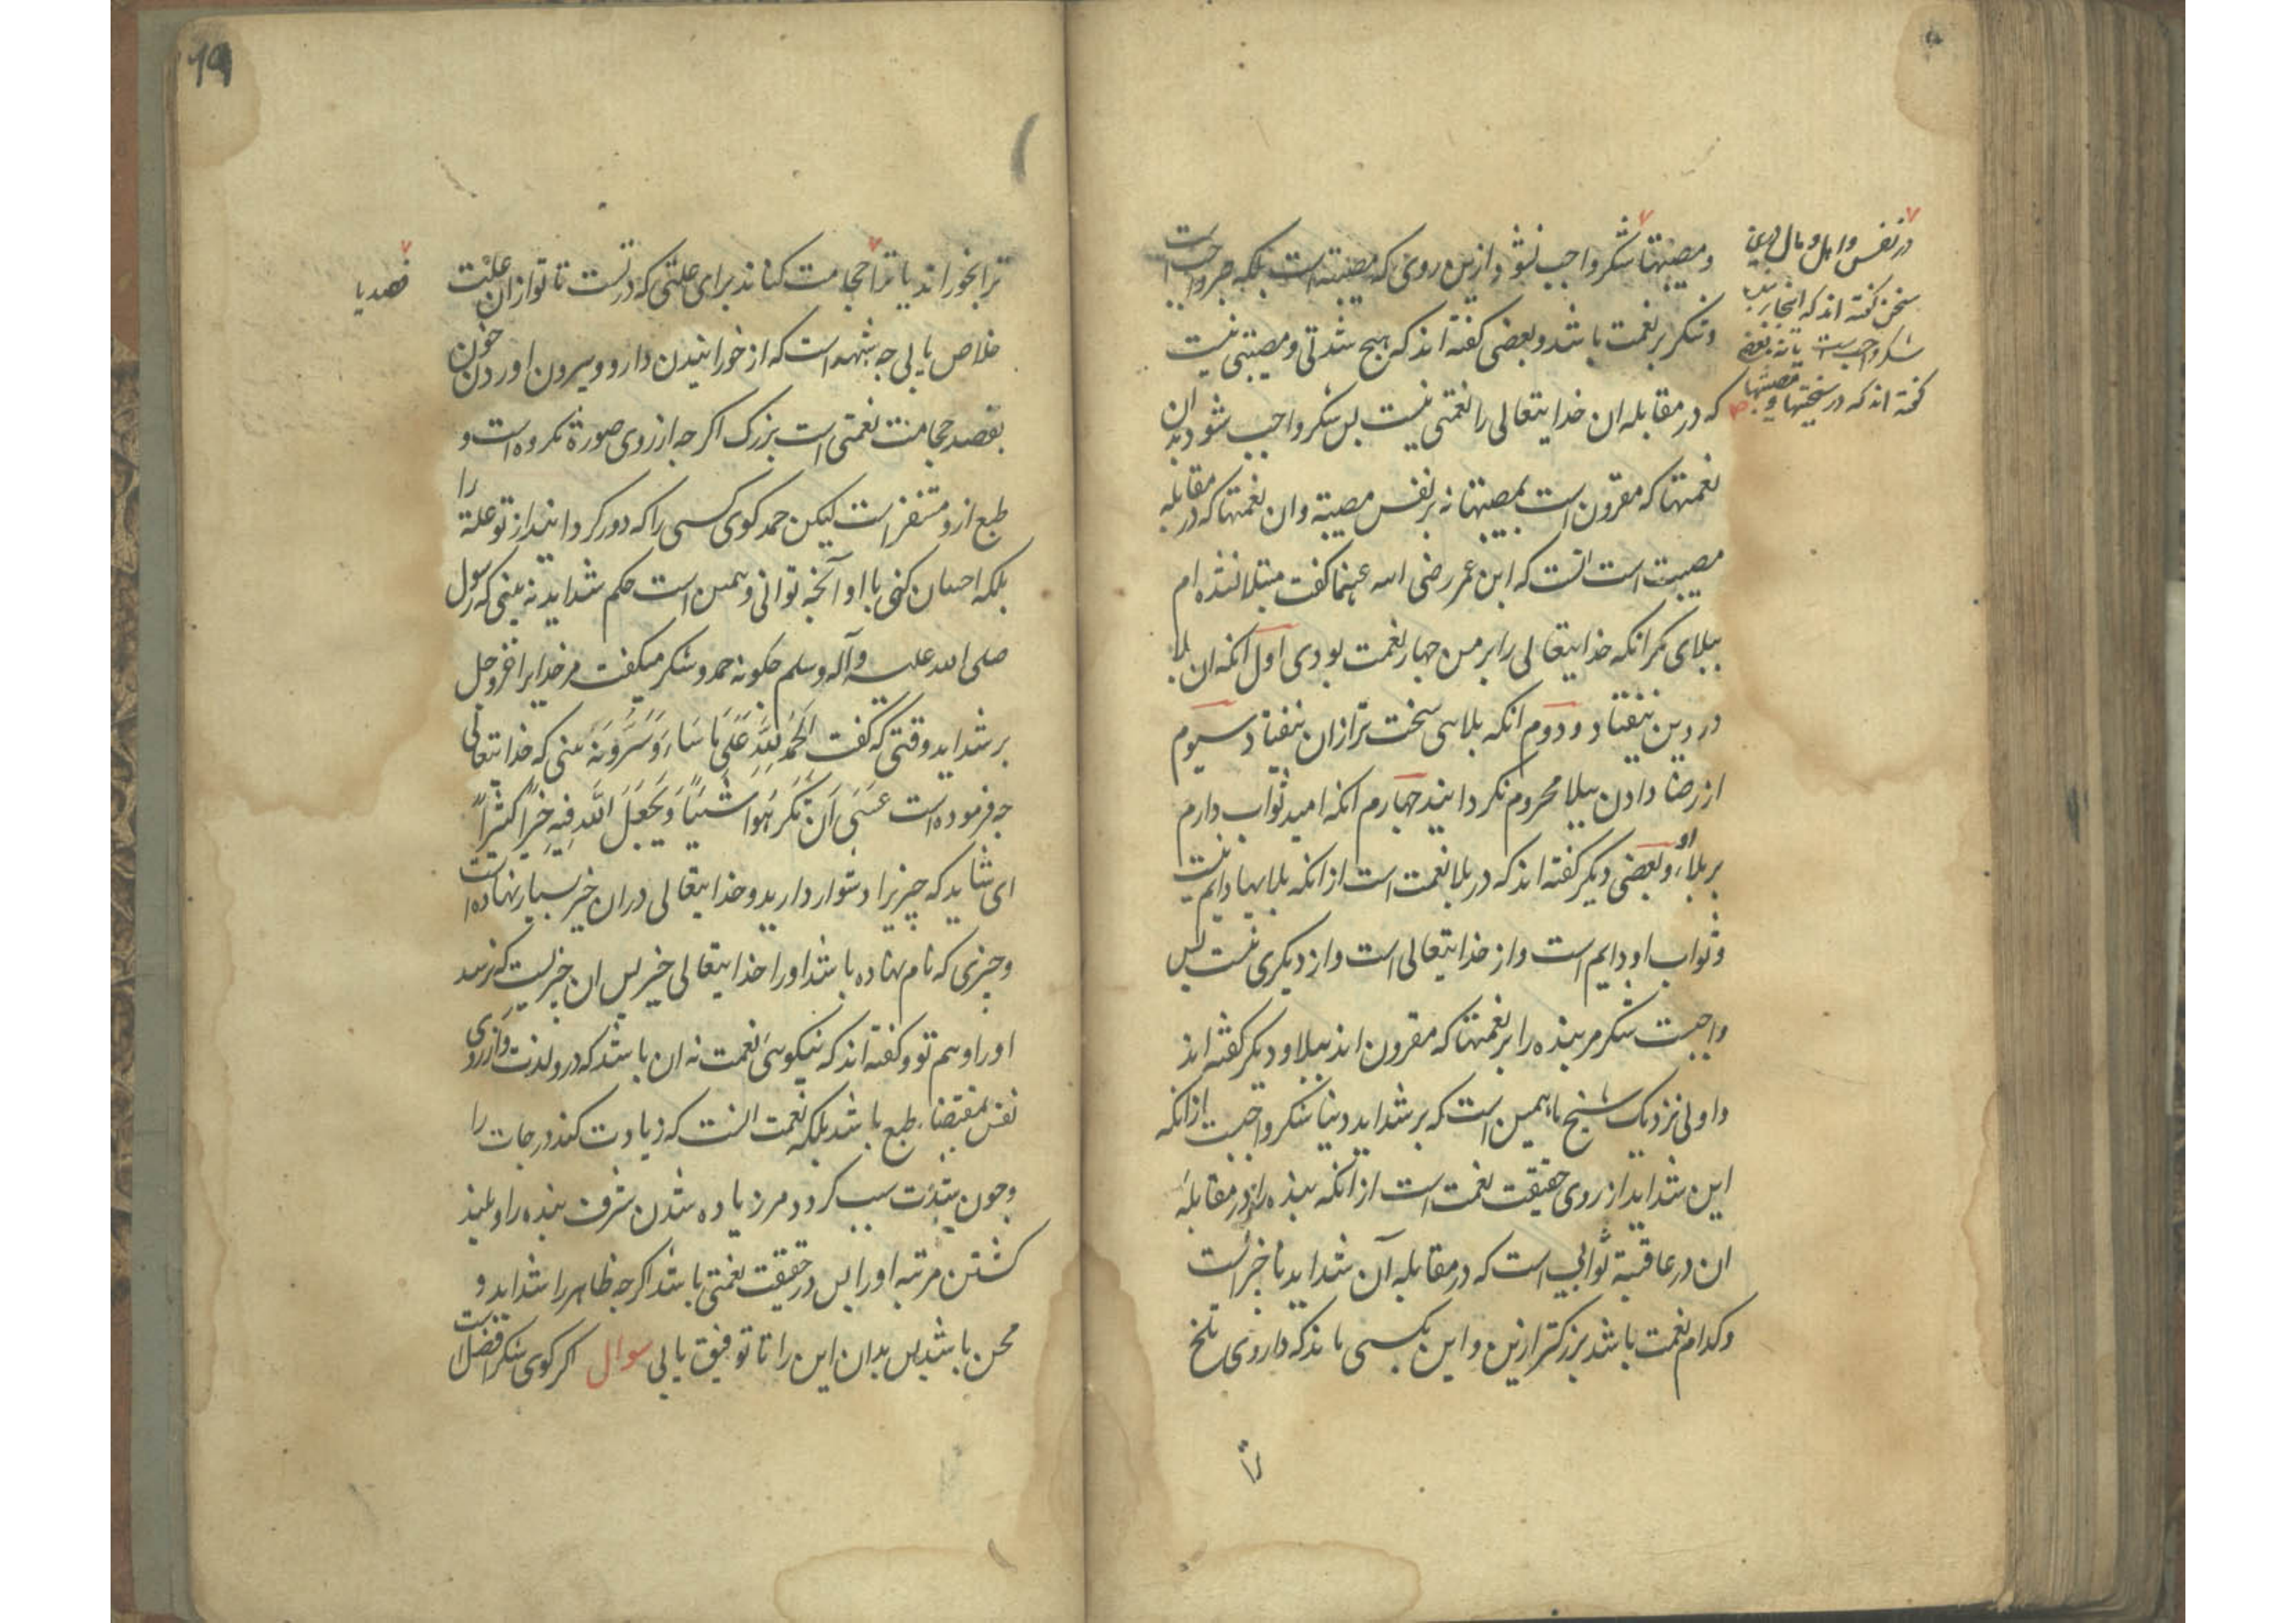 در نفس و اهل و مال درین
سخن گفته اند که اینجا
شکر واجبست یا نه بعضی
گفته اند که در سختیها و مصیبتها
و مصیبتها شکر واجب نشود ازین روی که مصیبت است بلکه صبر واجب است
و شکر بر نعمت باشد و بعضی گفته اند که هیچ شدتی و مصیبتی نیست
که در مقابله ان خدایتعالی را نعمتی نیست پس شکر واجب شود بدان
نعمتها که مقرون است بمصیبتها نه بر نفس مصیبة وان نعمتها که در مقابله
مصیبت است انست که ابن عمر رضی الله عنهما گفت مبتلا نشده ام
ببلای مکر انکه خدایتعالی را بر من چهار نعمت بودی اول انکه ان بلا
در دین نیفتاد و دوم انکه بلای سخت تر ازان نیفتاد سیوم
از رضا دادن ببلا محروم نکردانید چهارم انکه امید ثواب دارم
بر بلاء او و بعضی دیکر گفته اند که در بلا نعمت است از انکه بلایها دایم نیست
و ثواب او دایم است و از خدایتعالی است و از دیکری نیست پس
واجبست شکر مر بنده را بر نعمتها که مقرون اند ببلا و دیکر گفته اند
و اولی نزدیک شیخ ما همین است که بر شداید دنیا شکر واجبست از انکه
این شداید از روی حقیقت نعمت است از انکه بنده را در مقابلهٔ
ان در عاقبة ثوابی است که در مقابله آن شداید ناچیز است
و کدام نعمت باشد بزرکتر ازین و این بکسی ماند که داروی تلخ
ترا
19
ترا بخوراند یا ترا حجامت کناند برای علتی که در تست تا تو ازان علت
فصد یا
خلاص یابی چه شبهه است که از خورانیدن دارو و بیرون اوردن خون
بفصد حجامت نعمتی است بزرک اکر چه از روی صورة مکروه است و
طبع ازو متنفر است لیکن حمد کوی کسی را که دور کردانید از تو علة را
بلکه احسان کنی با او آنچه توانی و همین است حکم شداید نه بینی که رسول
صلی الله علیه و آله و سلم چکونه حمد و شکر میکفت مر خدایرا عز و جل
بر شداید وقتی که گفت الحمد لله علی ما ساء و سر و نه بینی که خدایتعالی
چه فرموده است عسی ان تکرهوا شیئا و یجعل الله فیه خیرا کثیرا
ای شاید که چیزیرا دشوار دارید و خدایتعالی دران خیر بسیار نهاده است
و چیزی که نام نهاده باشد او را خدایتعالی خیر پس ان خیریست که نرسد
او را وهم تو و گفته اند که نیکوی نعمت نه ان باشد که در و لذت و ازروی
نفس بمقتضاء طبع باشد بلکه نعمت انست که زیادت کند درجات را
و چون شدت سبب کردد مر زیاده شدن شرف بنده را و بلند
کشتن مرتبه او را پس در حقیقت نعمتی باشد اکر چه ظاهر را شداید و
محن باشد پس بدان این را تا توفیق یابی سوال اکر کوی شکر افضل است